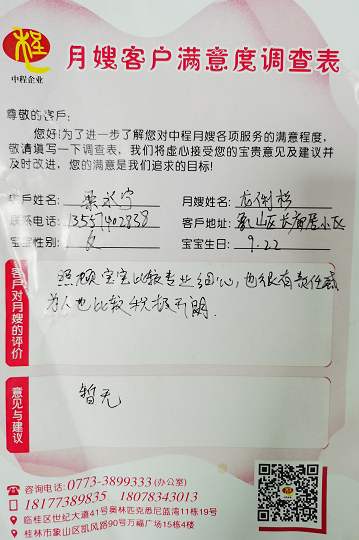 中程企业
月嫂客户满意度调查表
尊敬的客户:
您好!为了进一步了解您对中程月嫂各项服务的满意程度,
敬请填写一下调查表、我们将虚心接受您的宝贵意见及建议并
及时改进,您的满意是我们追求的目标!
客户姓名: 月嫂姓名:
联系电话: 13557402838 客户地址: 象山区长海居小区
宝宝性别: 女 宝宝生日: 9.22
客户对月嫂的评价
照顾宝宝比较专业细心,也很有责任感
为人也比较积极开朗.
意见与建议
暂无
咨询电话:0773-3899333(办公室)
18177389835 18078343013
临桂区世纪大道41号奥林匹克悉尼蓝湾11栋19号
桂林市象山区凯风路90号万福广场15栋4楼